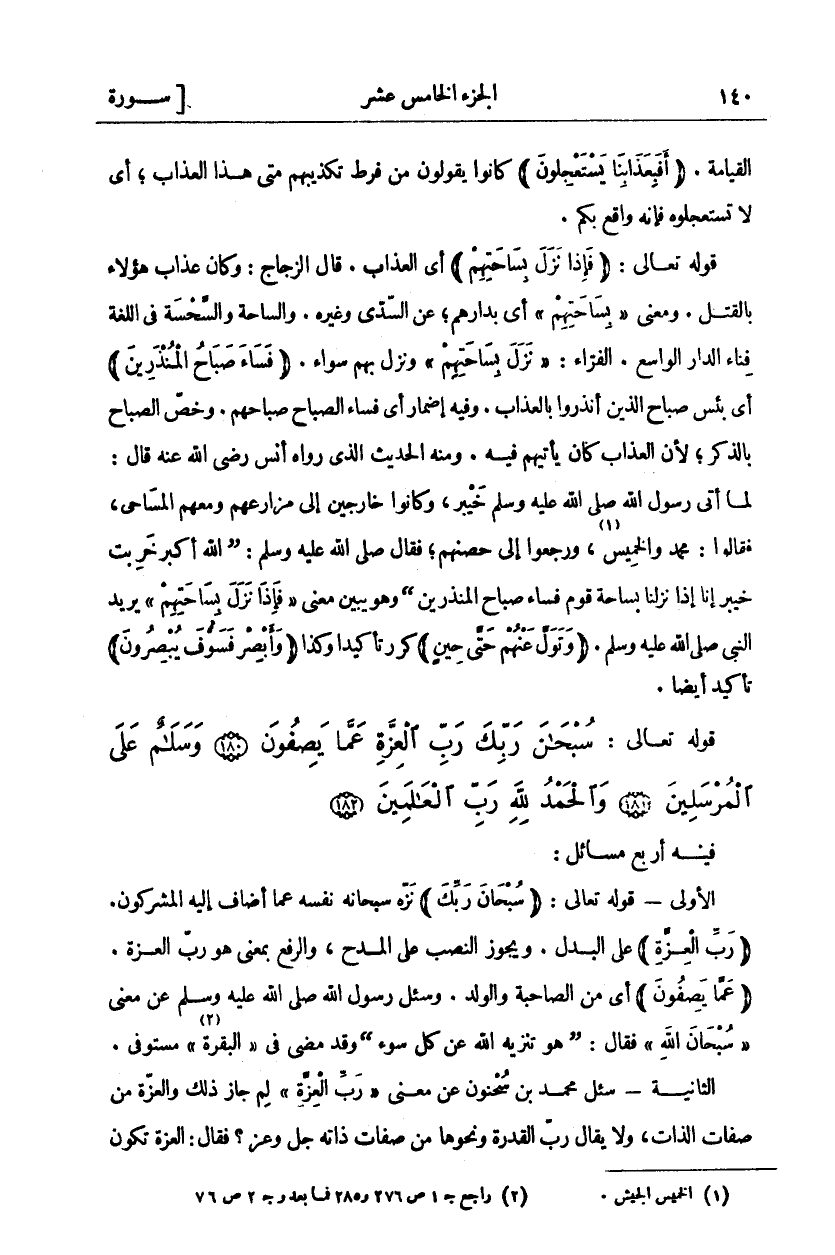 ١٤٠ الجزء الخامس عشر [ سـورة
القيامة . ﴿ أَفَبِعَذَابِنَا يَسْتَعْجِلُونَ ﴾ كانوا يقولون من فرط تكذيبهم متى هـذا العذاب ؛ أى
لا تستعجلوه فإنه واقع بكم .
قوله تعـالى : ﴿ فَإِذَا نَزَلَ بِسَاحَتِهِمْ ﴾ أى العذاب . قال الزجاج : وكان عذاب هؤلاء
بالقتـل . ومعنى « بِسَاحَتِهِمْ » أى بدارهم؛ عن السّدّى وغيره . والساحة والسَّحْسَة فى اللغة
فِناء الدار الواسع . الفرّاء : « نَزَلَ بِسَاحَتِهِمْ » ونزل بهم سواء . ﴿ فَسَاءَ صَبَاحُ الْمُنْذَرِينَ ﴾
أى بئس صباح الذين أنذروا بالعذاب . وفيه إضمار أى فساء الصباح صباحهم . وخصّ الصباح
بالذكر ؛ لأن العذاب كان يأتيهم فيـه . ومنه الحديث الذى رواه أنس رضى الله عنه قال :
لمـا أتى رسول الله صلى الله عليه وسلم خَيْبر ، وكانوا خارجين إلى مزارعهم ومعهم المساحى،
فقالوا : محمد والخميس (١) ، ورجعوا إلى حصنهم؛ فقال صلى الله عليه وسلم : ” الله أكبر خَرِبت
خيبر إنا إذا نزلنا بساحة قوم فساء صباح المنذرين “ وهو يبين معنى « فَإِذَا نَزَلَ بِسَاحَتِهِمْ » يريد
النبى صلى الله عليه وسلم . ﴿ وَتَوَلَّ عَنْهُمْ حَتَّى حِينٍ ﴾ كرر تأكيدا وكذا ﴿ وَأَبْصِرْ فَسَوْفَ يُبْصِرُونَ ﴾
تأكيد أيضا .
قوله تعـالى : سُبْحَـٰنَ رَبِّكَ رَبِّ ٱلْعِزَّةِ عَمَّا يَصِفُونَ ﴿١٨٠﴾ وَسَلَـٰمٌ عَلَى
ٱلْمُرْسَلِينَ ﴿١٨١﴾ وَٱلْحَمْدُ لِلَّهِ رَبِّ ٱلْعَـٰلَمِينَ ﴿١٨٢﴾
فيـه أربع مسـائل :
الأولى – قوله تعالى : ﴿ سُبْحَانَ رَبِّكَ ﴾ نزّه سبحانه نفسه عما أضاف إليه المشركون.
﴿ رَبِّ الْعِـزَّةِ ﴾ على البـدل . ويجوز النصب على المـدح ، والرفع بمعنى هو ربّ العـزة .
﴿ عَمَّا يَصِفُونَ ﴾ أى من الصاحبة والولد . وسئل رسول الله صلى الله عليه وسـلم عن معنى
« سُبْحَانَ اللهِ » فقال : ” هو تنزيه الله عن كل سوء “ وقد مضى فى « البقرة (٢) » مستوفى .
الثانيـة – سئل محمـد بن سُحْنون عن معـنى « رَبِّ الْعِزَّةِ » لم جاز ذلك والعزّة من
صفات الذات، ولا يقال ربّ القدرة ونحوها من صفات ذاته جل وعز ؟ فقال : العزة تكون
(١) الخميس الجيش . (٢) راجع جـ ١ ص ٢٧٦ و٢٨٥ فـا بعد و جـ ٢ ص ٧٦